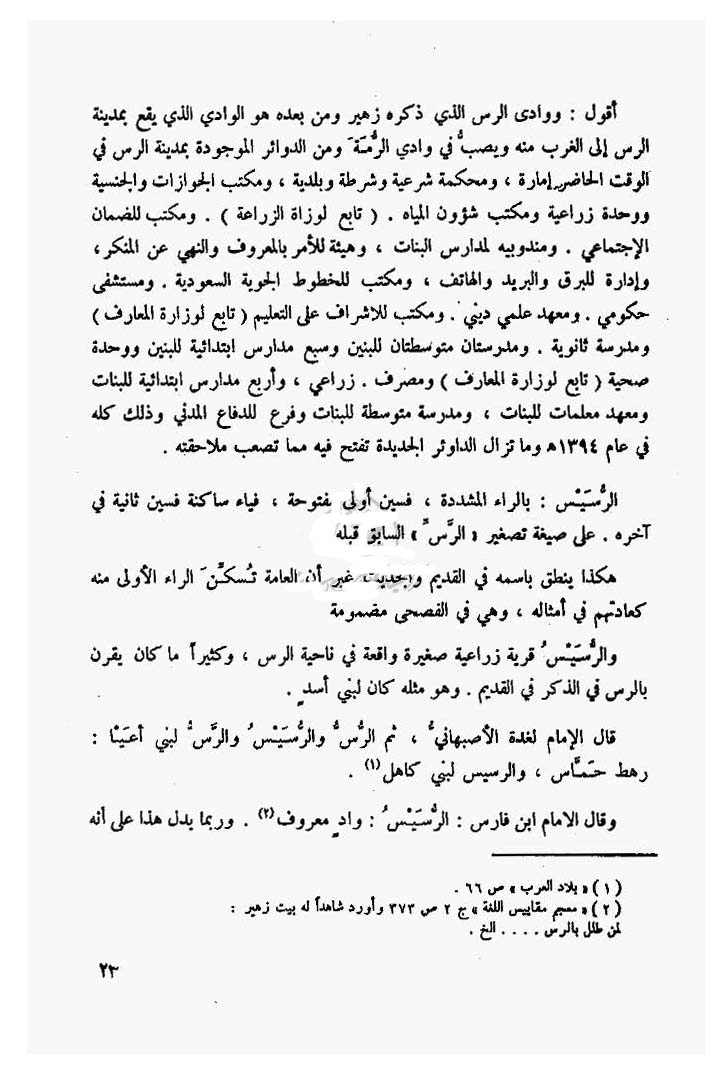 أقول : ووادى الرس الذي ذكره زهير ومن بعده هو الوادي الذي يقع بمدينة
الرس إلى الغرب منه ويصبُّ في وادي الرُّمَّة َ ومن الدوائر الموجودة بمدينة الرس في
الوقت الحاضر إمارة ، ومحكمة شرعية وشرطة وبلدية ، ومكتب الجوازات والجنسية
ووحدة زراعية ومكتب شؤون المياه . ( تابع لوزاة الزراعة ) . ومكتب للضمان
الإجتماعي . ومندوبيه لمدارس البنات ، وهيئة للأمر بالمعروف والنهي عن المنكر ،
وإدارة للبرق والبريد والهاتف ، ومكتب للخطوط الجوية السعودية . ومستشفى
حكومي . ومعهد علمي ديني . ومكتب للاشراف على التعليم ( تابع لوزارة المعارف )
ومدرسة ثانوية . ومدرستان متوسطتان للبنين وسبع مدارس ابتدائية للبنين ووحدة
صحية ( تابع لوزارة المعارف ) ومصرف . زراعي ، وأربع مدارس ابتدائية للبنات
ومعهد معلمات للبنات ، ومدرسة متوسطة للبنات وفرع للدفاع المدني وذلك كله
في عام ١٣٩٤ه وما تزال الداوئر الجديدة تفتح فيه مما تصعب ملاحقته .
الرُّسَيْس : بالراء المشددة ، فسين أولى مفتوحة ، فياء ساكنة فسين ثانية في
آخره . على صيغة تصغير « الرَّسِّ » السابق قبله
هكذا ينطق باسمه في القديم والحديث غير أن العامة تُسكِّنَ الراء الأولى منه
كعادتهم في أمثاله ، وهي في الفصحى مضمومة
والرُّسَيْسُ قرية زراعية صغيرة واقعة في ناحية الرس ، وكثيراً ما كان يقرن
بالرس في الذكر في القديم . وهو مثله كان لبني أسدٍ .
قال الإمام لغدة الأصبهانيُّ ، ثم الرُّسُّ والرُّسَيْسُ والرَّسُّ لبني أعْيَا :
رهط حَمَّاس ، والرسيس لبني كاهل(١) .
وقال الامام ابن فارس : الرُّسَيْسُ : وادٍ معروف(٢) . وربما يدل هذا على أنه
( ١ ) « بلاد العرب » ص ٦٦ .
( ٢ ) « معجم مقاييس اللغة » ج ٢ ص ٣٧٣ وأورد شاهداً له بيت زهير :
لمن طلل بالرس . . . . الخ .
٢٣